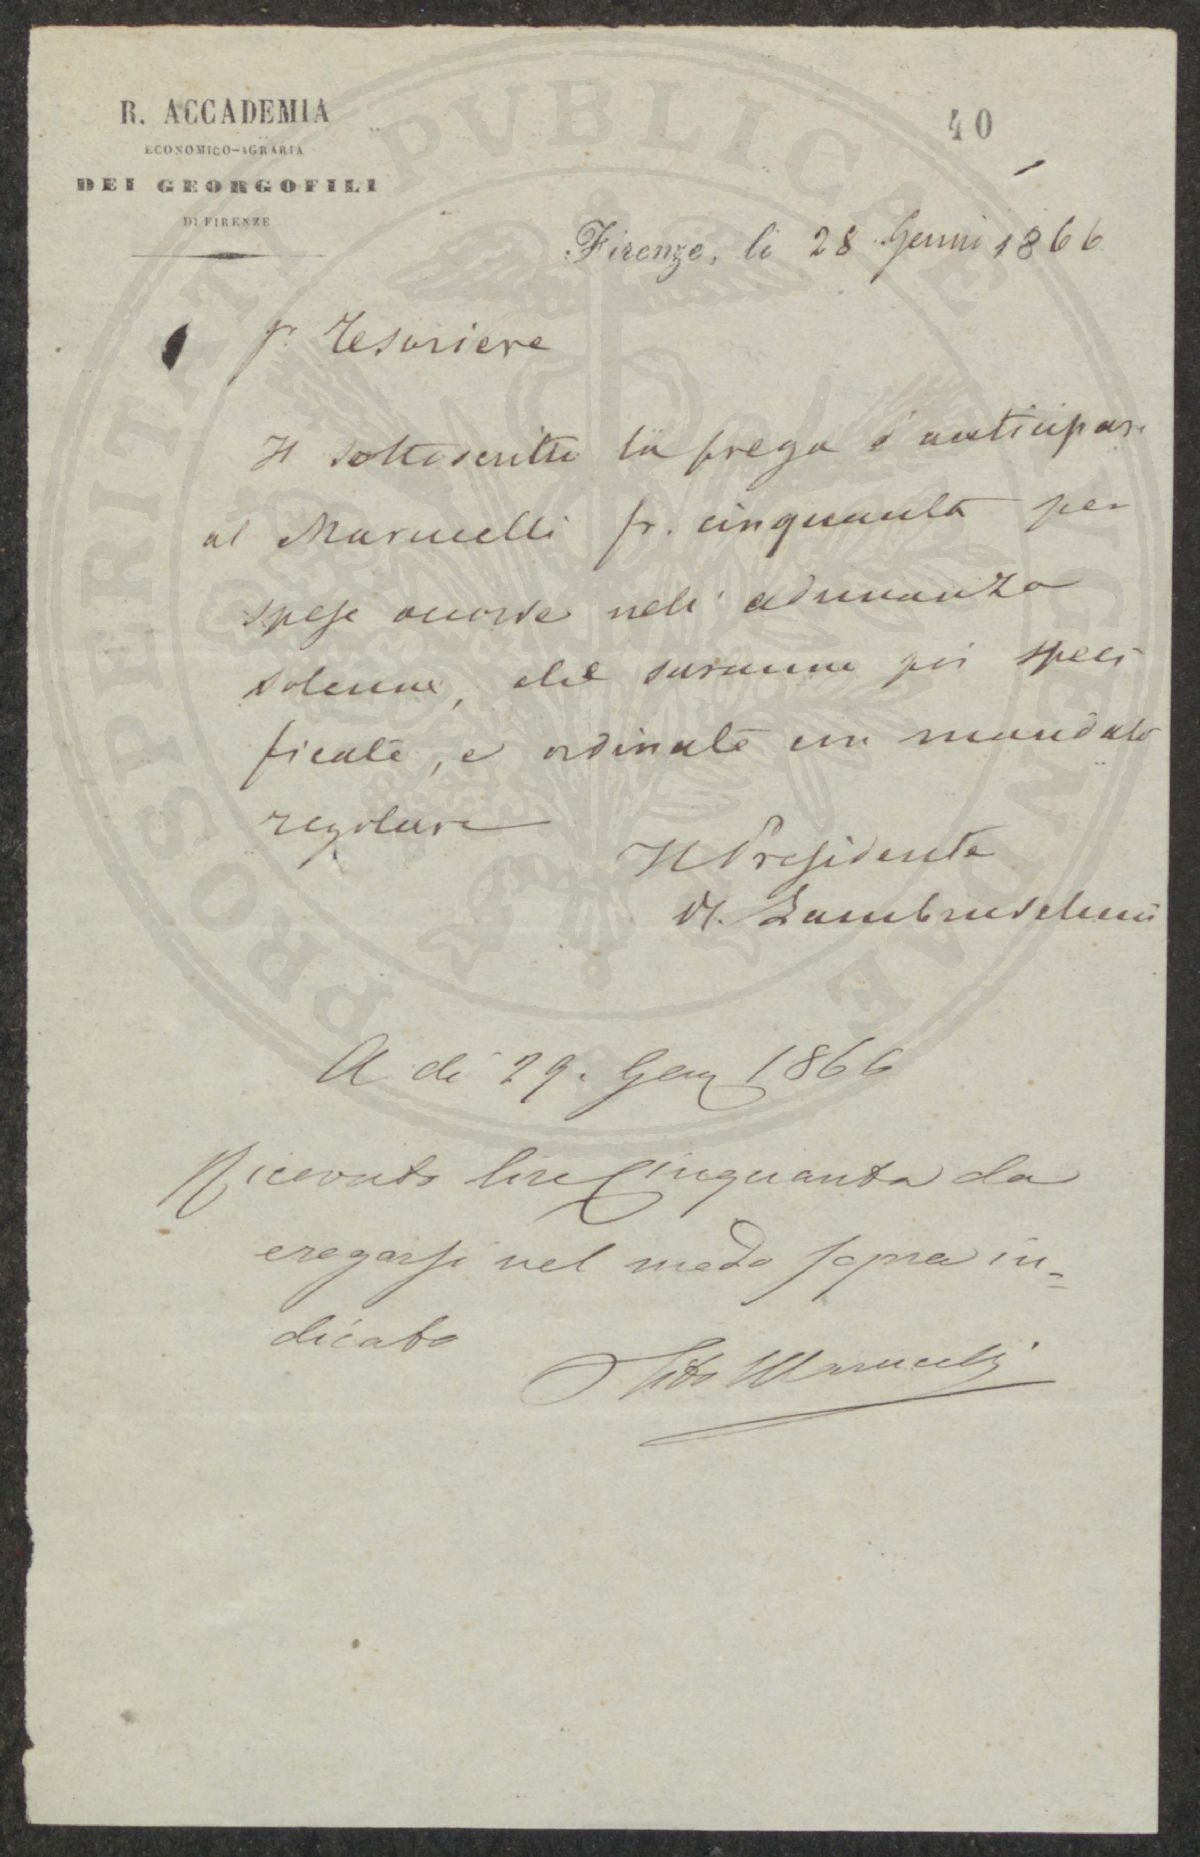 R. ACCADEMIA
ECONOMICO-AGRARIA
DEI GEORGOFILI
DI FIRENZE
40
Firenze, li 28 Genn 1866
Sr. Tesoriere
Il sottoscritto la prega d'anticipare
al Marucelli fr. cinquanta per
spese occorse nell'adunanza
solenne, che saranno poi speci
ficate, e ordinate con mandato
regolare
Il Presidente
R. Lambruschini
A di 29. Genn 1866
Ricevuto lire Cinquanta da
erogarsi nel modo sopra in=
dicato
Tito Marucelli
PROSPERITATI PVBLICAE AVGENDAE